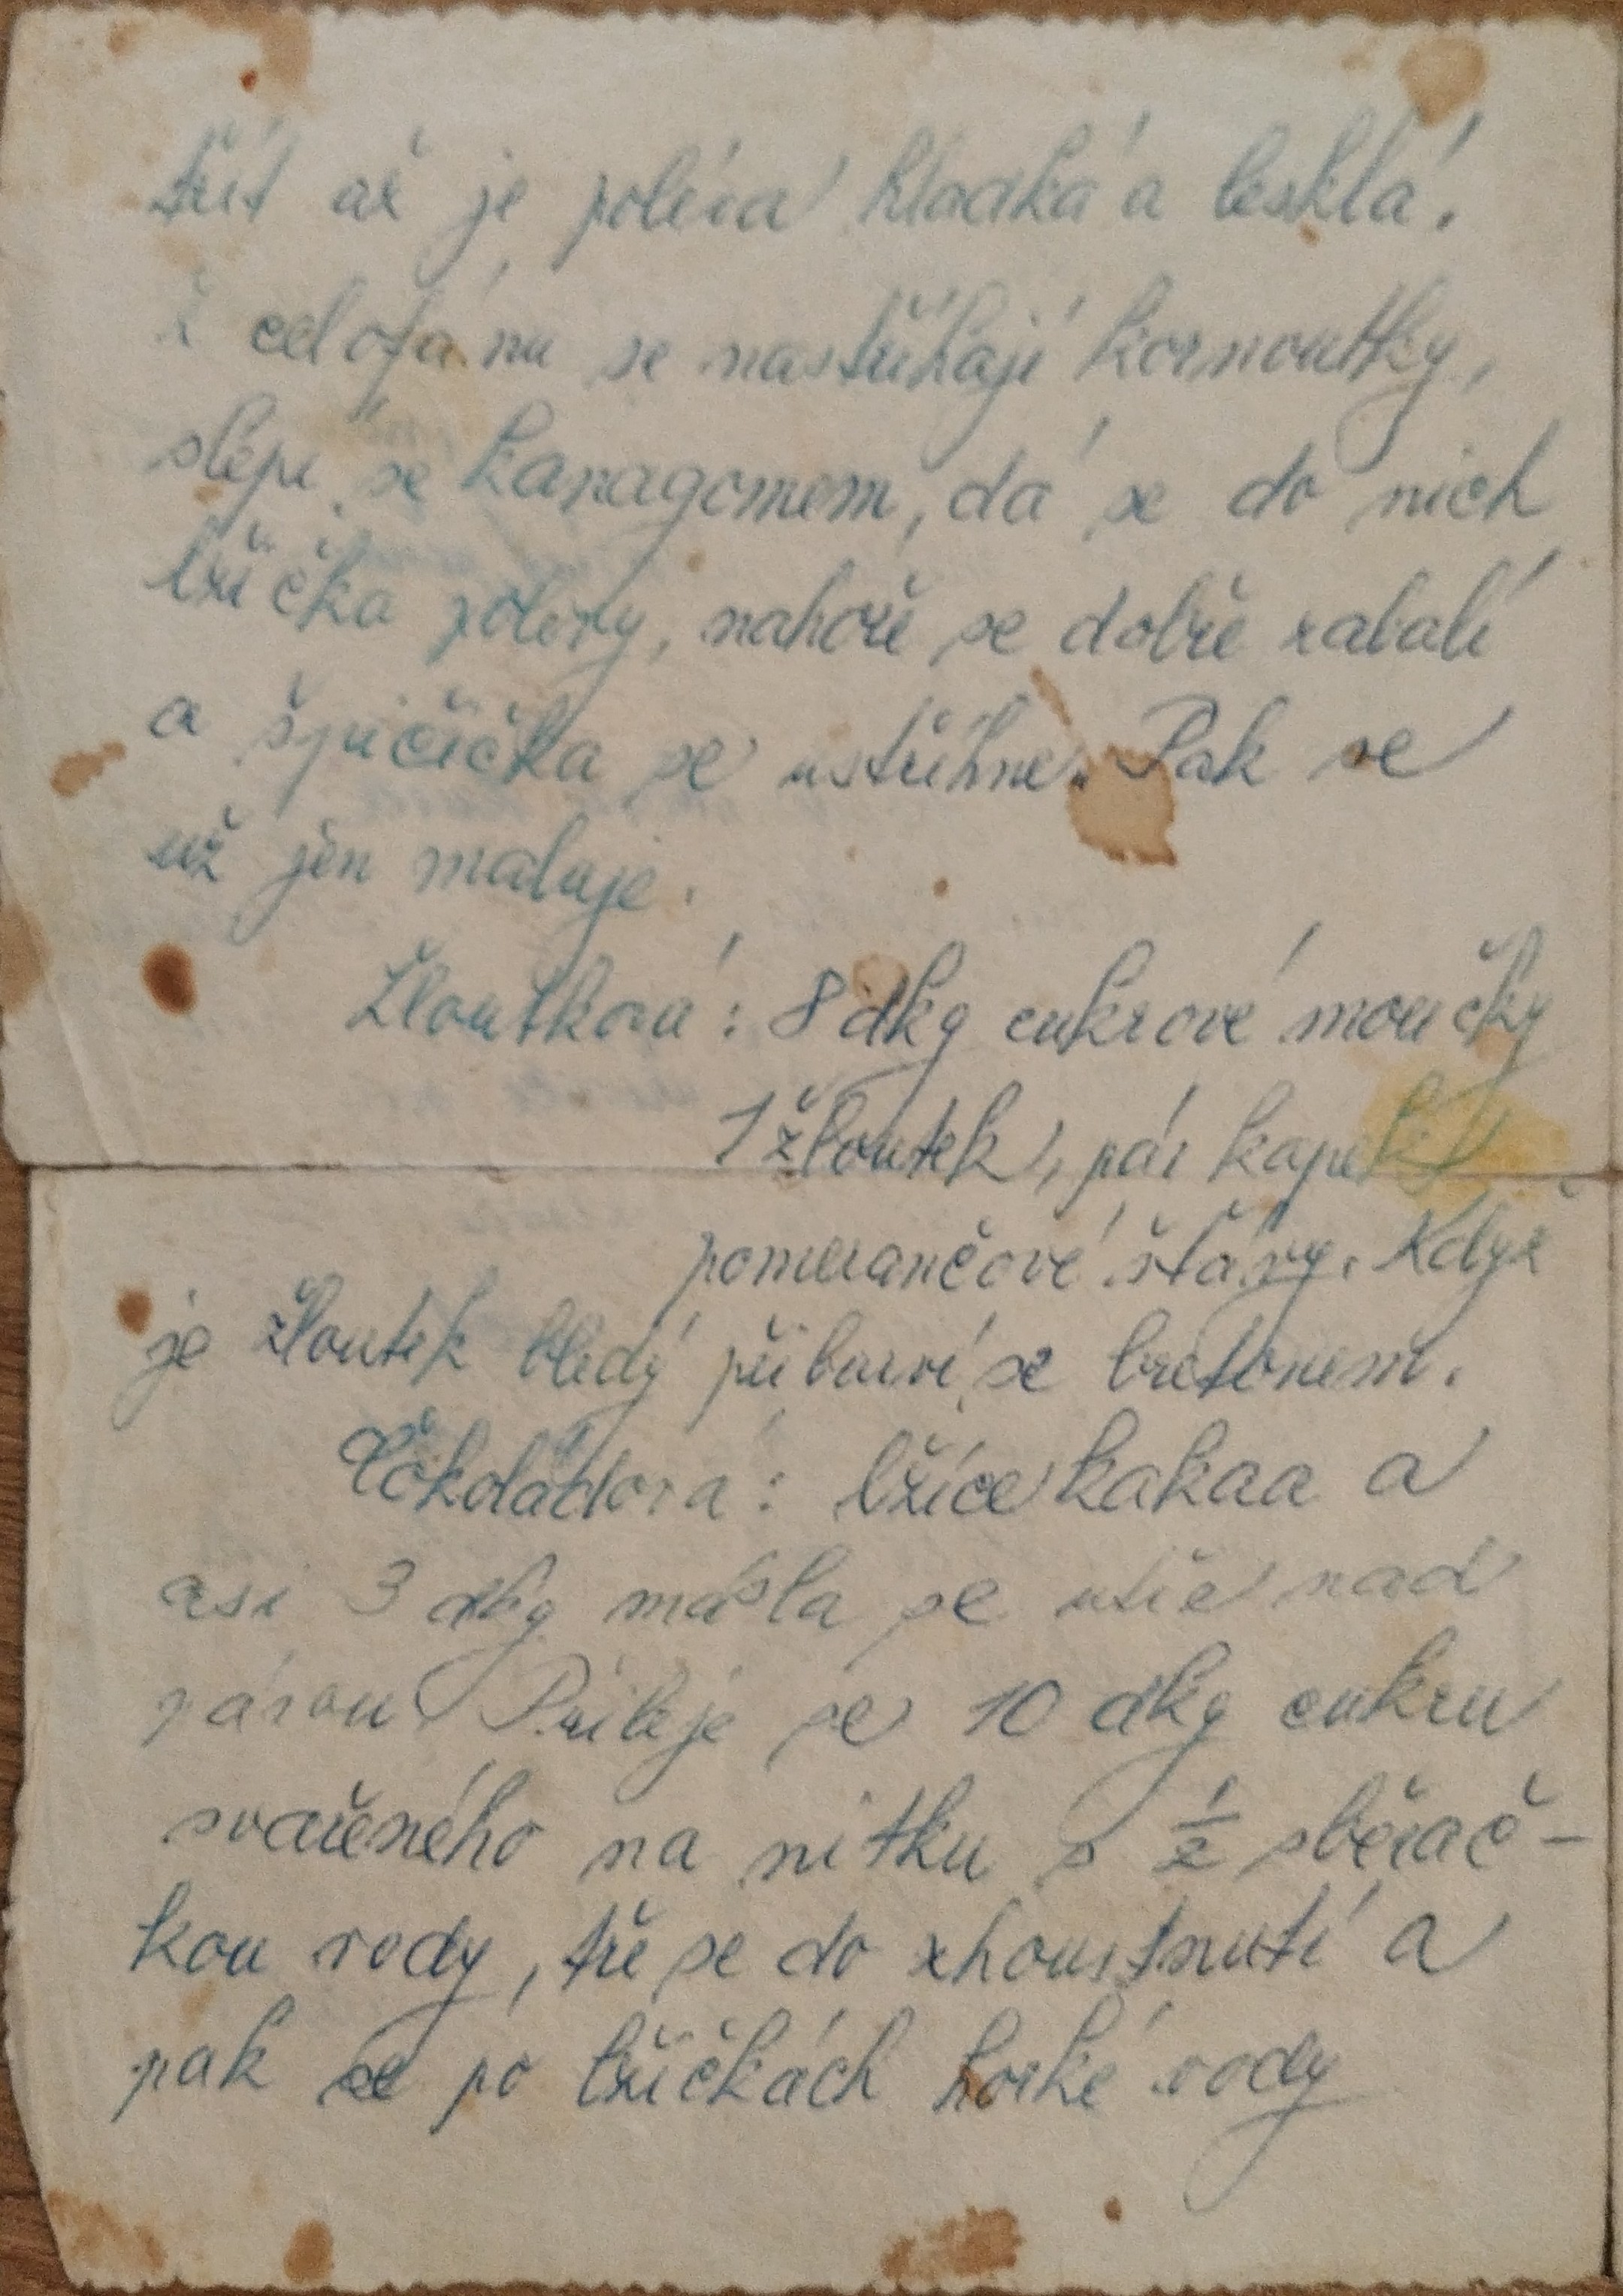 třít až je poléva hladká a lesklá.
Z celofánu se nastříhají kornoutky,
slepí se kanagomem, dá se do nich
lžička polévy, nahoře se dobře zabalí
a špičička se ustřihne. Pak se
už jen maluje.
Žloutková: 8 dkg cukrové moučky
1 žloutek, pár kapek
pomerančové šťávy. Když
je žloutek bledý přibarví se bretonem.
Čokoládová: lžíce kakaa a
asi 3 dkg másla se utře nad
párou. Přileje se 10 dkg cukru
svařeného na nitku s 1/2 sběrač-
kou vody, tře se do zhoustnutí a
pak se po lžičkách horké vody